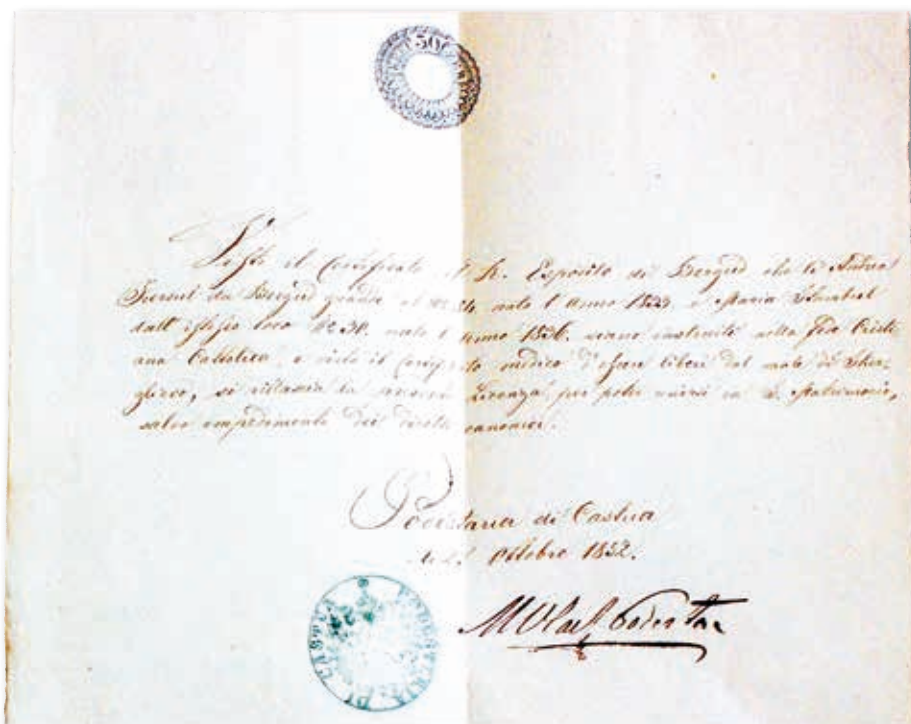 500
Visto il Certificato R. Esposito di Bergud che li Andrea
da Bergud grande al No. 34. nato l'anno 1833. e Maria
dall' istesso loco No. 30. nata l'anno 1836. siano instruiti nella Fede Cristi
ana Cattolica, e visto il medico d'esser liberi dal male di Scher-
lievo, si rilascia la presente Licenza per poter unirsi in S. Matrimonio,
salvo impedimento dei diritti canonici.
Podestaria di Castua
Ottobre 1852.
Podestà
PODESTARIA DI CASTUA